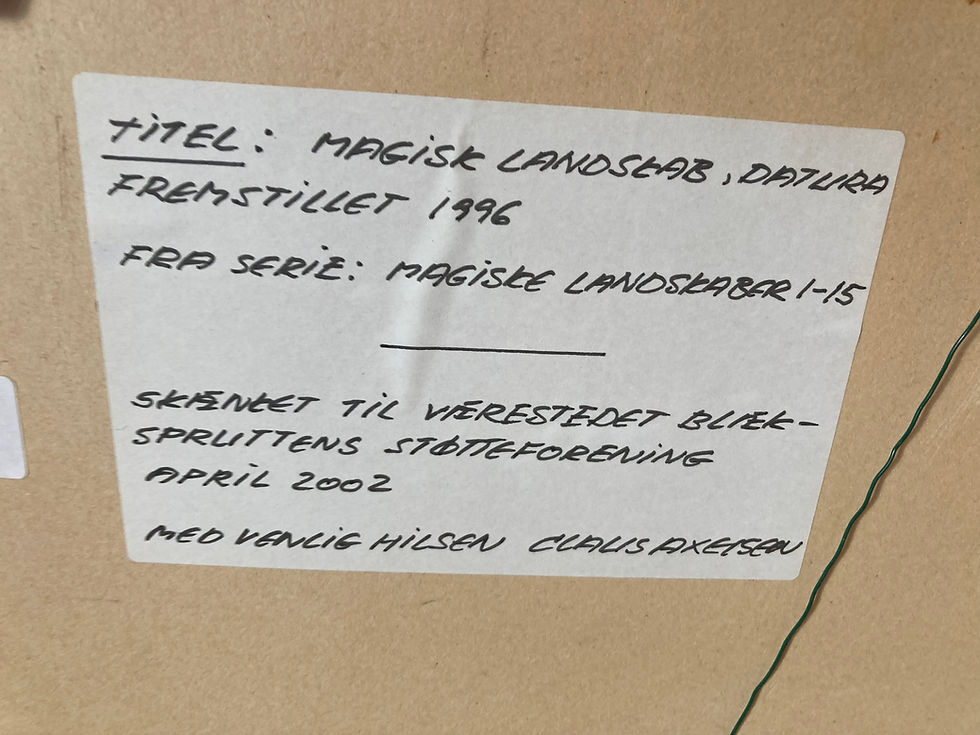 TITEL: MAGISK LANDSKAB, DATURA
FREMSTILLET 1996
FRA SERIE: MAGISKE LANDSKABER 1-15
SKÆNKET TIL VÆRESTEDET BLÆK-
SPRUTTENS STØTTEFORENING
APRIL 2002
MED VENLIG HILSEN CLAUS AXELSEN